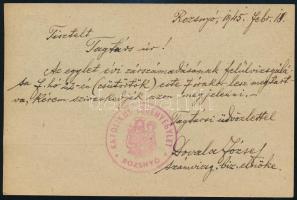 Rozsnyó, 1945. febr. 18.
Tisztelt
Tagtárs úr!
Az egylet évi zárszámadásának felülvizsgálá-
sa f. hó 22-én (csütörtök) este 7 órakor lesz megtart-
va, kérem szíveskedjék azon megjelenni.
Tagtársi üdvözlettel
József
számvizsg. biz. elnöke.
KATOLIKUS LEGÉNYEGYLET
ROZSNYÓ